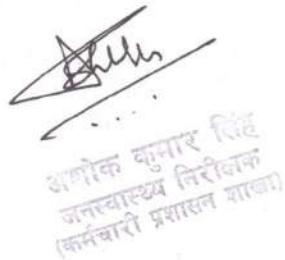 अशोक कुमार सिंह
जनस्वास्थ्य निरीक्षक
(कर्मचारी प्रशासन शाखा)